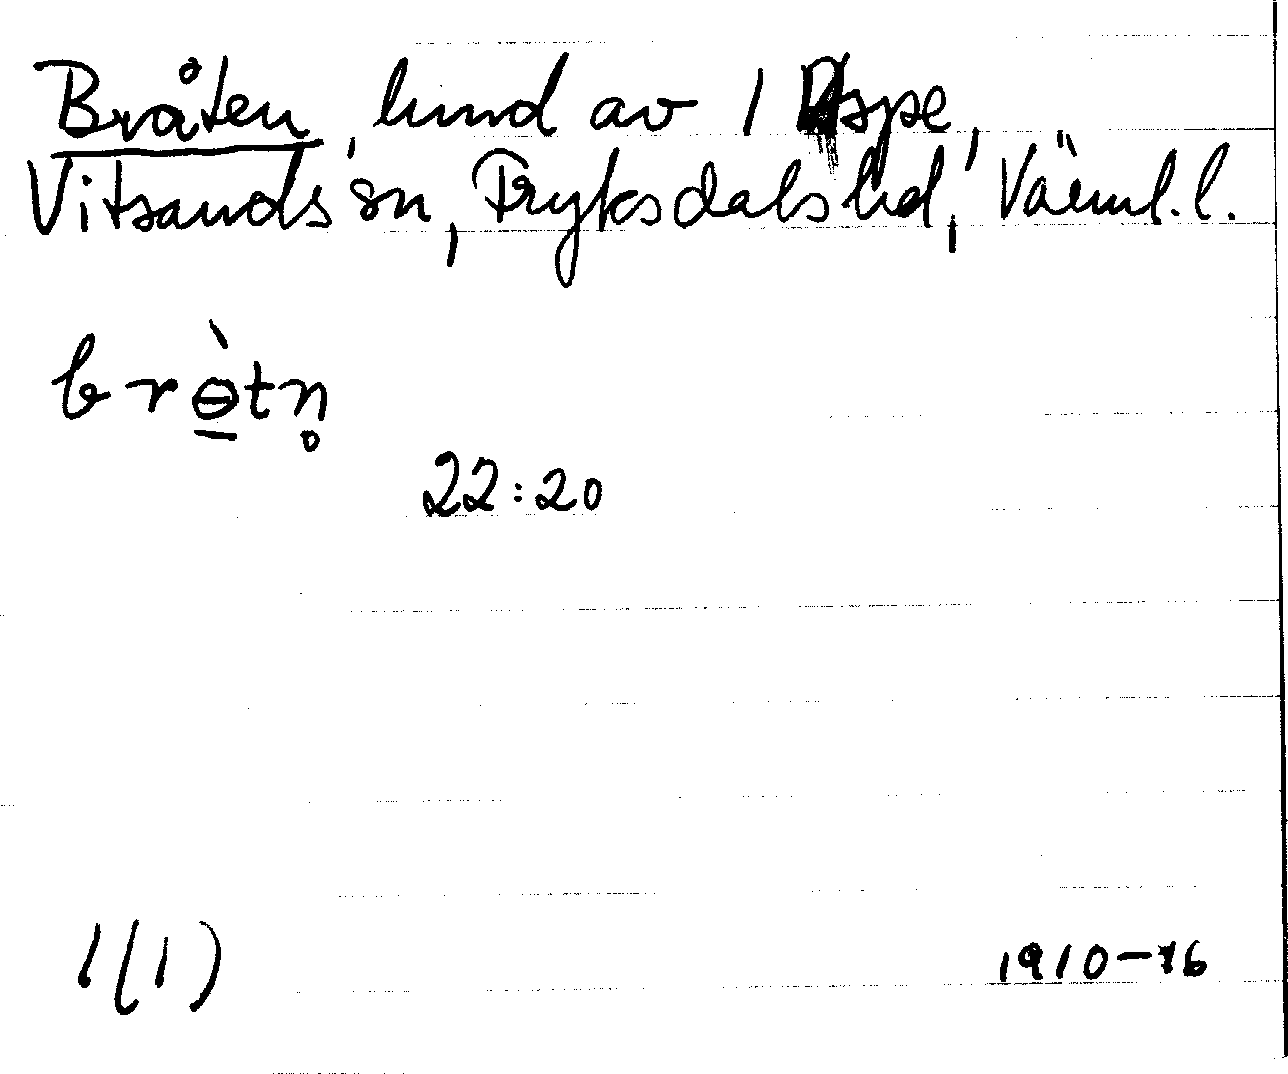 Bråten, lund av 1 Aspe,
Vitsands sn, Fryksdals hd, Värml. l.
brɵ̲̀tn̥
22:20
1(1)
1910-16